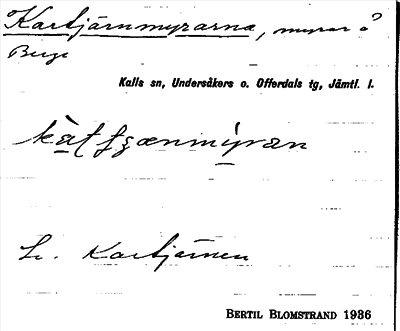 Kartjärnmyrarna, myrar å
Berge
Kalls sn, Undersåkers o. Offerdals tg, Jämtl. l.
Kartjärnen
BERTIL BLOMSTRAND 1936